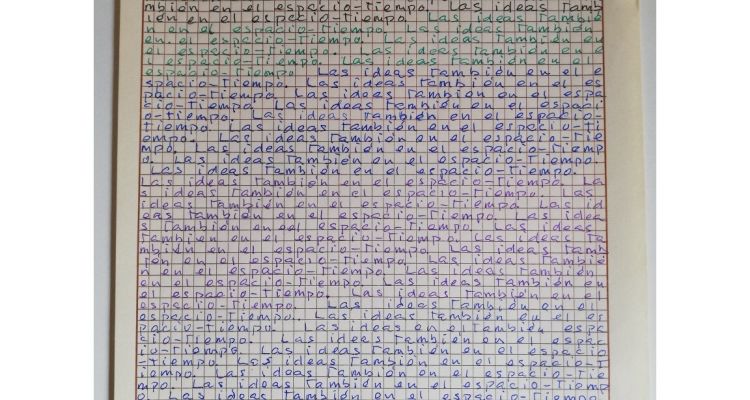 mbién en el espacio-Tiempo. Las ideas Tamb
ién en el espacio-Tiempo. Las ideas Tambié
n en el espacio-Tiempo. Las ideas Tambien
en el espacio-Tiempo. Las ideas Tambien en
el espacio-Tiempo. Las ideas Tambien en e
l espacio-Tiempo. Las ideas Tambien en el
espacio-Tiempo. Las ideas Tambien en el e
spacio-Tiempo. Las ideas Tambien en el es
pacio-Tiempo Las ideas Tambien en el espa
cio-Tiempo Las ideas Tambien en el espaci
o-Tiempo. Las ideas Tambien en el espacio-
Tiempo. Las ideas Tambien en el espacio-Ti
empo. Las ideas Tambien en el espacio-Tie
mpo. Las ideas Tambien en el espacio-Tiemp
o. Las ideas Tambien en el espacio-Tiempo.
Las ideas Tambien en el espacio-Tiempo.
Las ideas Tambien en el espacio-Tiempo. La
s ideas Tambien en el espacio-Tiempo. Las
ideas Tambien en el espacio-Tiempo. Las id
eas Tambien en el espacio-Tiempo. Las idea
s Tambien en el espacio-Tiempo. Las ideas
Tambien en el espacio-Tiempo. Las ideas Ta
mbien en el espacio-Tiempo Las ideas Tamb
ien en el espacio-Tiempo. Las ideas Tambié
n en el espacio-Tiempo. Las ideas Tambien
en el espacio-Tiempo. Las ideas Tambien en
el espacio-Tiempo. Las ideas Tambien en el
espacio-Tiempo. Las ideas Tambien en el es
pacio-Tiempo. Las ideas en el Tambien espa
cio-Tiempo. Las ideas Tambien en el espac
io-Tiempo Las ideas Tambien en el espacio
-Tiempo. Las ideas Tambien en el espacio-T
iempo. Las ideas Tambien en el espacio-Tie
mpo. Las ideas Tambien en el espacio-Tiemp
o. Las ideas Tambien en el espacio-Tiempo.